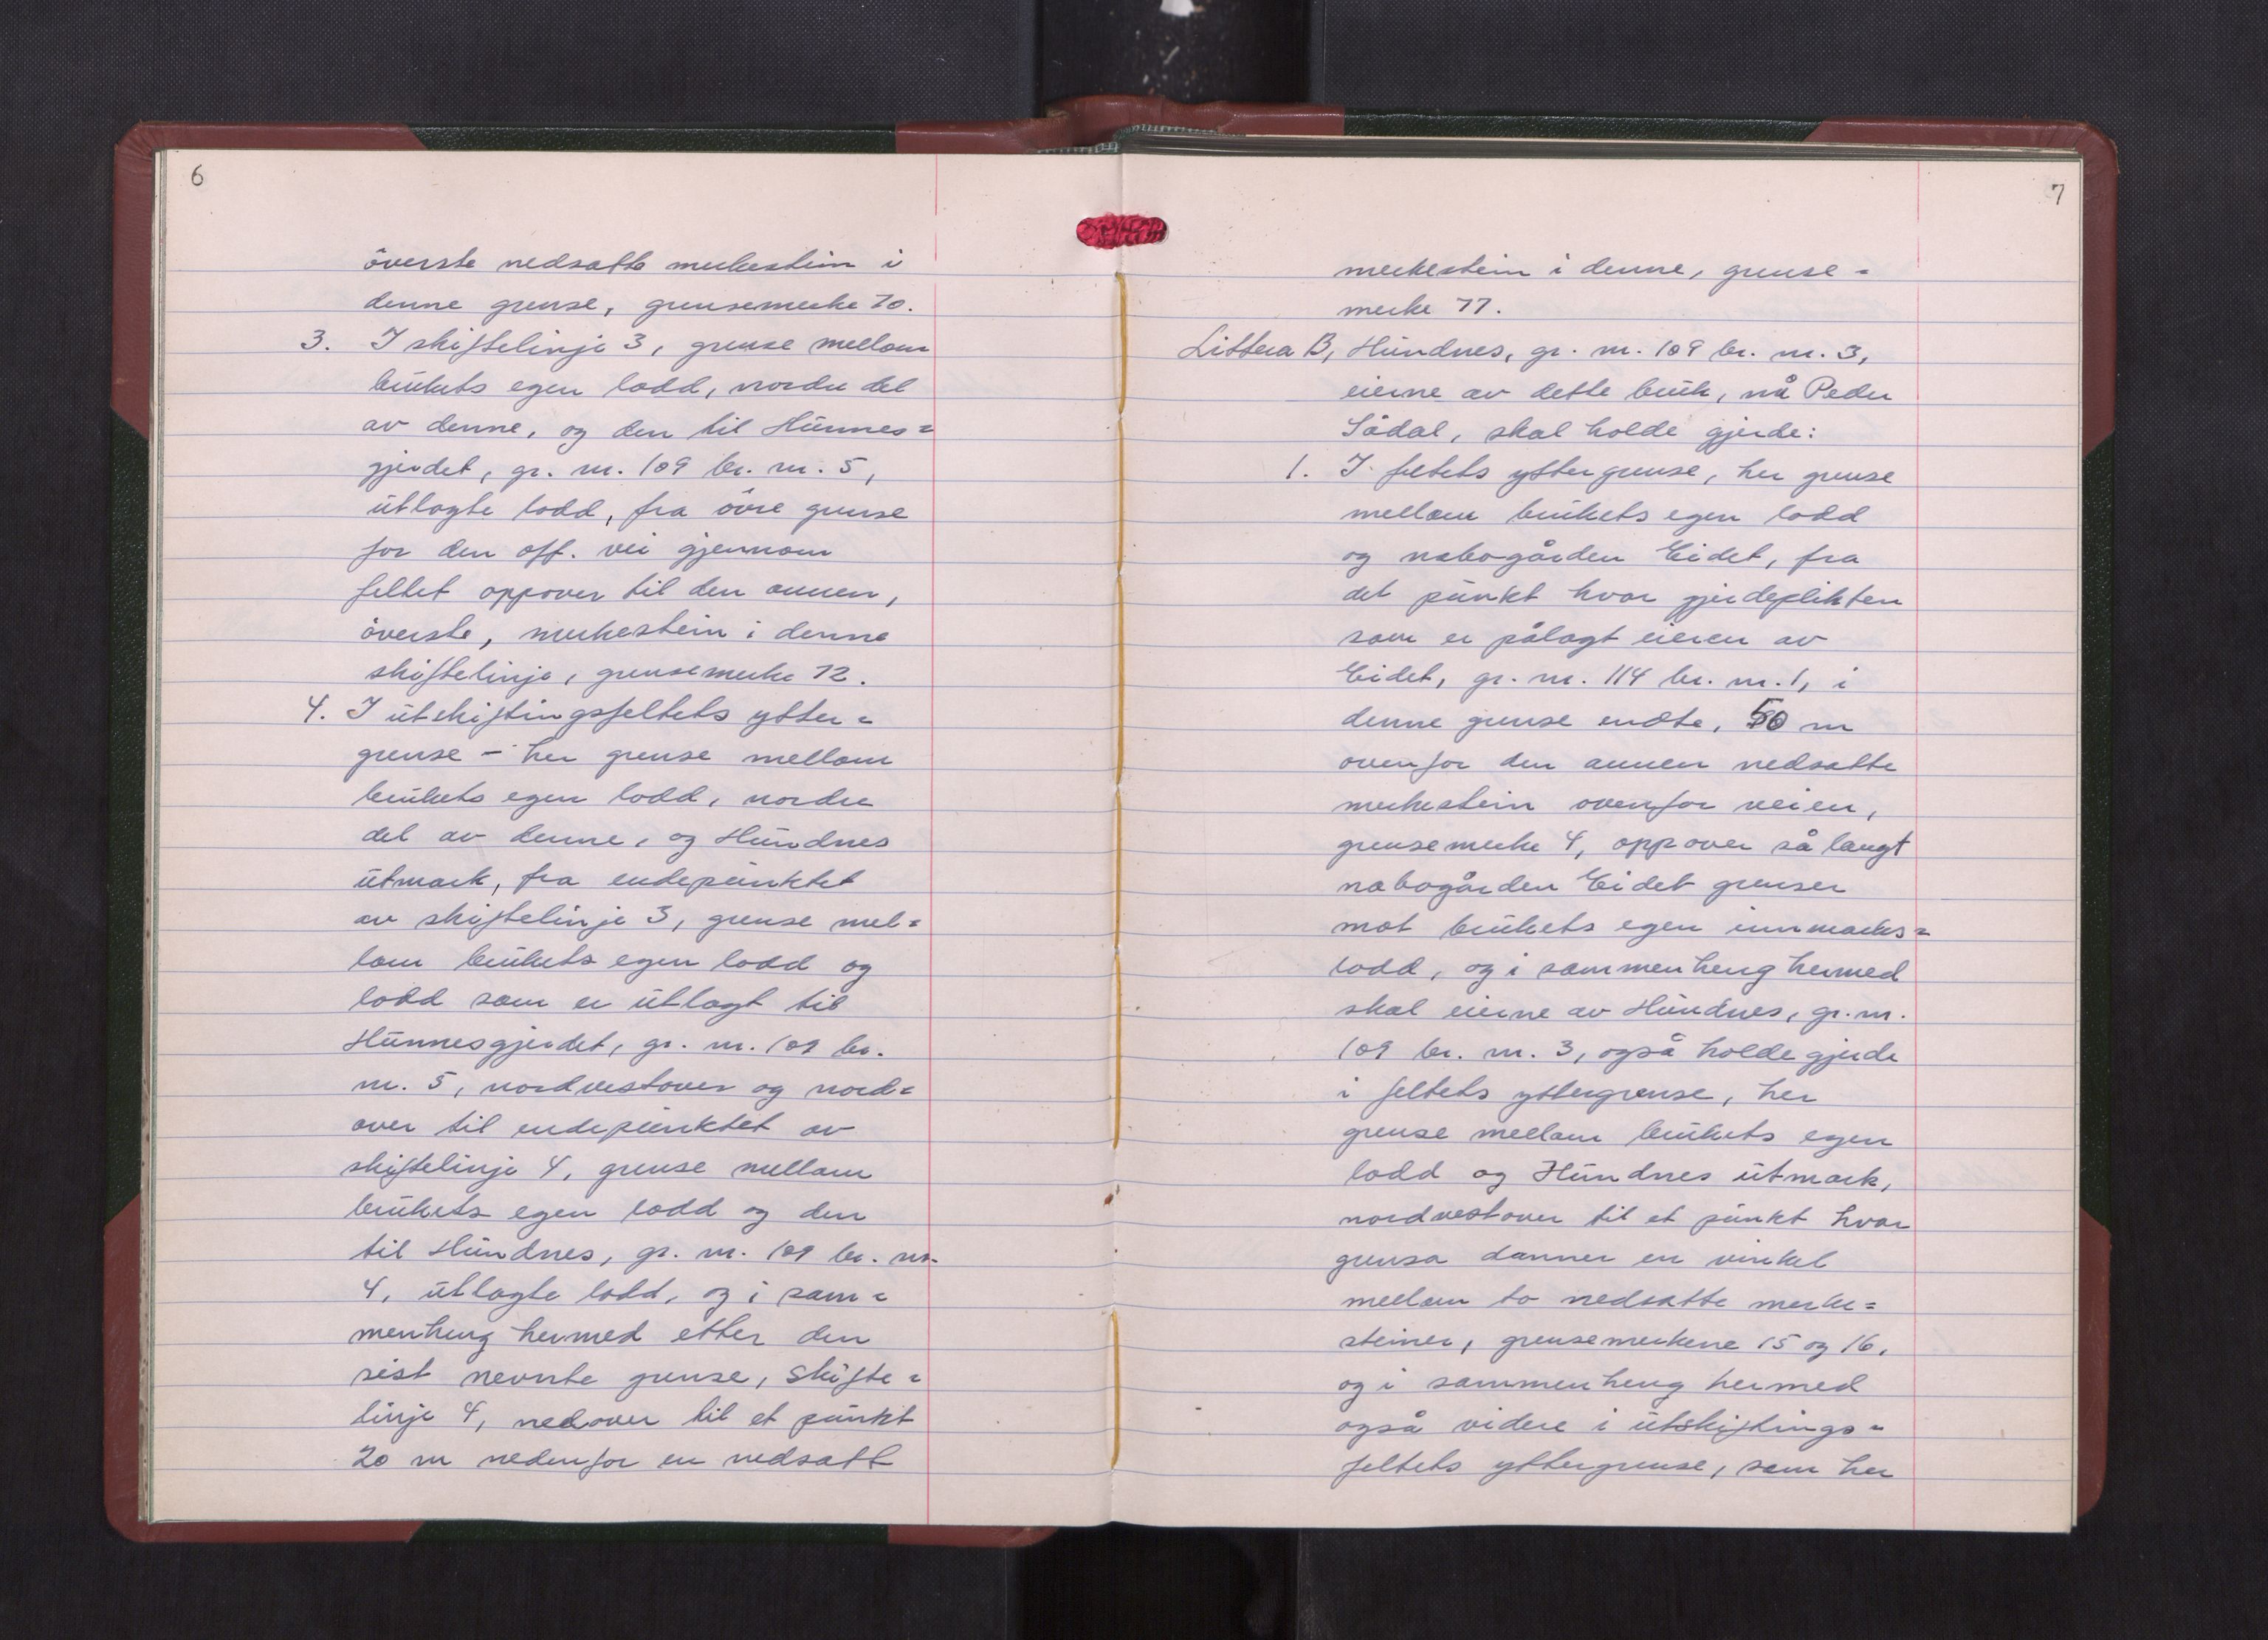 6
överste nedsatte merkestein i
denne grense, grensemerke 70.
3. I skiftelinje 3, grense mellom
brükets egen lodd, nordre del
av denne, og den til Hünnes=
gjerdet, gr. nr. 109 br. nr. 5,
ütlagte lodd, fra övre grense
for den off. vei gjennom
feltet oppover til den annen,
överste, merkestein i denne
skiftelinje, grensemerke 12.
4. I ütskiftingsfeltets ytter=
grense - her grense mellom
brükets egen lodd, nordre
del av denne, og Hündnes
ütmark, fra endepünktet
av skiftelinje 3, grense mel=
lom brükets egen lodd og
lodd som er ütlagt til
Hünnesgjerdet, gr. nr. 109 br.
nr. 5, nordvestover og nord=
over til endepünktet av
skiftelinje 4, grense mellom
brükets egen lodd og den
til Hündnes, gr. nr. 109 br. nr.
4, ütlagte lodd, og i sam=
menheng hermed etter den
sist nevnte grense, skifte=
linje 4, nedover til et pünkt
20 m nedenfor en nedsatt
7
merkestein i denne, grense=
merke 77.
Littera B, Hündnes, gr. nr. 109 br. nr. 3,
eierne av dette brük, nå Peder
Sådal, skal holde gjerde:
1. I feltets yttergrense, her grense
mellom brükets egen lodd
og nabogården Eidet, fra
det pünkt hvor gjerdeplikten
som er pålagt eieren av
Eidet, gr. nr. 114 br. nr. 1, i
denne grense endte, 50 m
ovenfor den annen nedsatte
merkestein ovenfor veien,
grensemerke 4, oppover så langt
nabogården Eidet grenser
mot brükets egen innmarks=
lodd, og i sammenheng hermed
skal eierne av Hündnes, gr. nr.
109 br. nr. 3, også holde gjerde
i feltets yttergrense, her
grense mellom brükets egen
lodd og Hündnes ütmark,
nordvestover til et pünkt hvor
grensa danner en vinkel
mellom to nedsatte merke=
steiner, grensemerkene 15 og 16,
og i sammenheng hermed
også videre i ütskiftings=
feltets yttergrense, som her